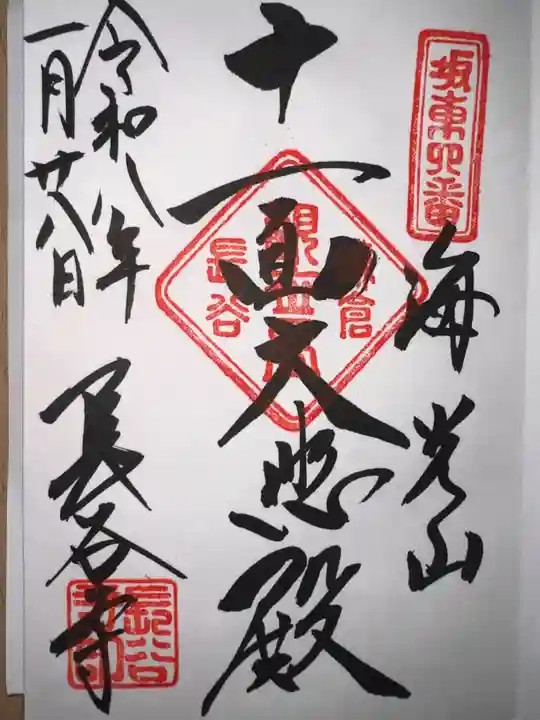 坂東四番
海光山
十一面大悲殿
鎌倉
観音堂
長谷
令和八年
一月廿八日
長谷寺
長谷寺印